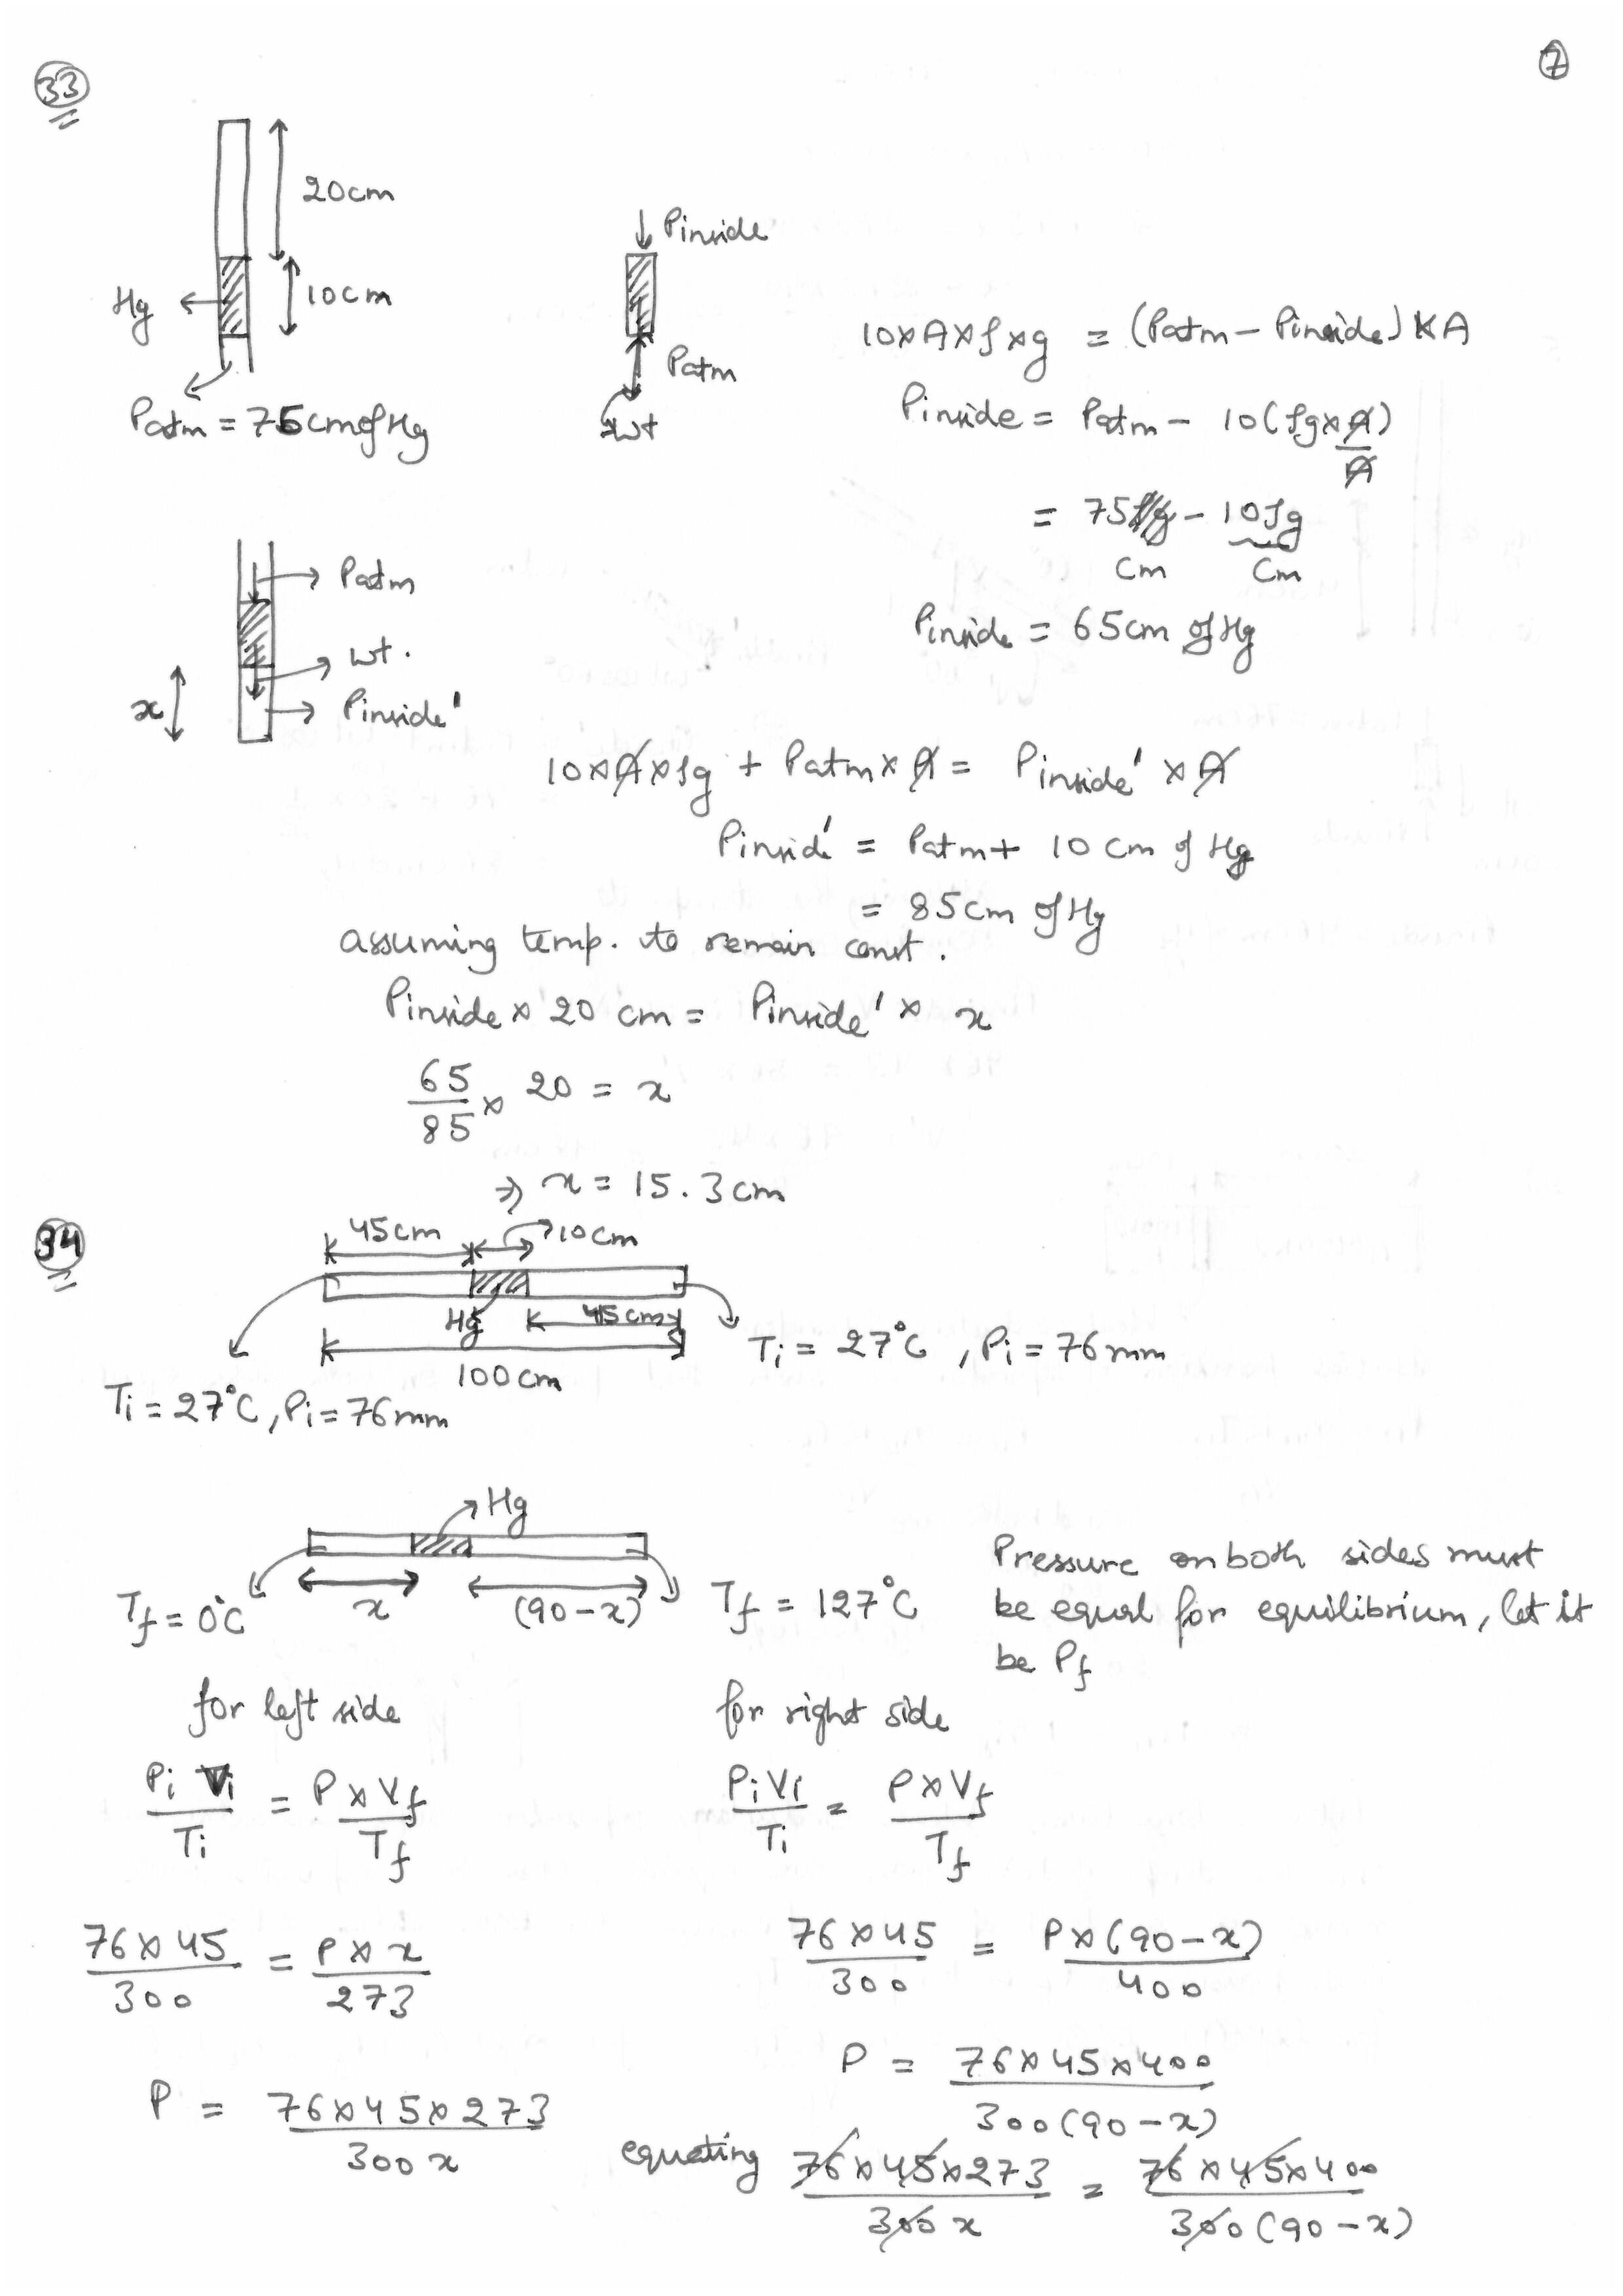 7
33
20cm
Pinside
Hg
10cm
Patm
wt
Patm = 75cmofHg
10×A×ρ×g = (Patm - Pinside) × A
Pinside = Patm - 10(ρg×A)/A
= 75 - 10ρg
cm cm
Pinside = 65cm of Hg
Patm
wt.
x
Pinside'
10×A×ρg + Patm×A = Pinside' × A
Pinsid' = Patm + 10 cm of Hg
= 85cm of Hg
assuming temp. to remain const.
Pinside × 20 cm = Pinside' × x
65/85 × 20 = x
⇒ x = 15.3cm
34
45cm
10cm
Hg
45cm
100cm
Ti = 27°C, Pi = 76mm
Ti = 27°C, Pi = 76mm
Hg
Tf = 0°C
x
(90-x)
Tf = 127°C
Pressure on both sides must
be equal for equilibrium, let it
be Pf
for left side
for right side
Pi Vi/Ti = P × Vf/Tf
Pi Vi/Ti = P × Vf/Tf
76 × 45/300 = P × x/273
76 × 45/300 = P×(90-x)/400
P = 76×45×400/300(90-x)
P = 76×45×273/300x
equating 76×45×273/300x = 76×45×400/300(90-x)